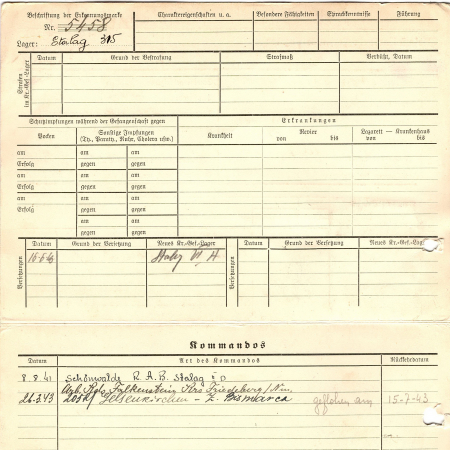 Beschriftung der Erkennungsmarke
Nr. 5458
Lager: Stalag 315
Charaktereigenschaften u. a.
Besondere Fähigkeiten
Sprachkenntnisse
Führung
Strafen im Kr.-Gef.-Lager
Datum
Grund der Bestrafung
Strafmaß
Verbüßt, Datum
Schutzimpfungen während der Gefangenschaft gegen
Erkrankungen
Pocken
Sonstige Impfungen
(Ty., Paraty., Ruhr, Cholera usw.)
Krankheit
Revier
von bis
Lazarett — Krankenhaus
von bis
am am am
Erfolg gegen gegen
am am am
Erfolg gegen gegen
am am am
Erfolg gegen gegen
am am
gegen gegen
Versetzungen
Datum Grund der Versetzung Neues Kr.-Gef.-Lager
Versetzungen
Datum Grund der Versetzung Neues Kr.-Gef.-Lager
Stalag VI A
Kommandos
Datum Art des Kommandos Rückkehrdatum
8.8.41 Schönwalde R.A.B. Stalag
Falkenstein Krs Friedeberg/Nm.
26.3.43 205 Gelsenkirchen - Z. Bismarck geflohen am 15-7-43